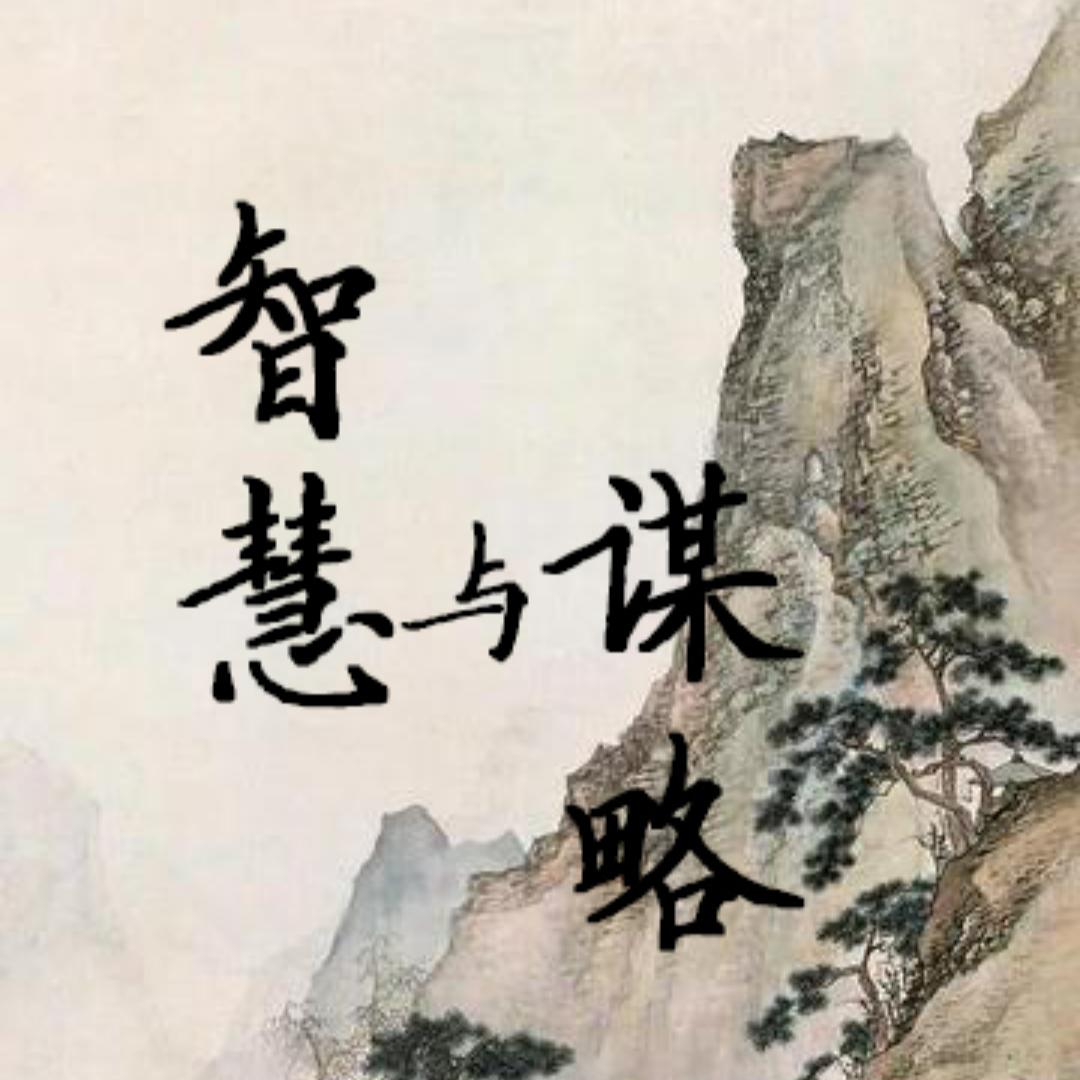 智慧
与
谋略